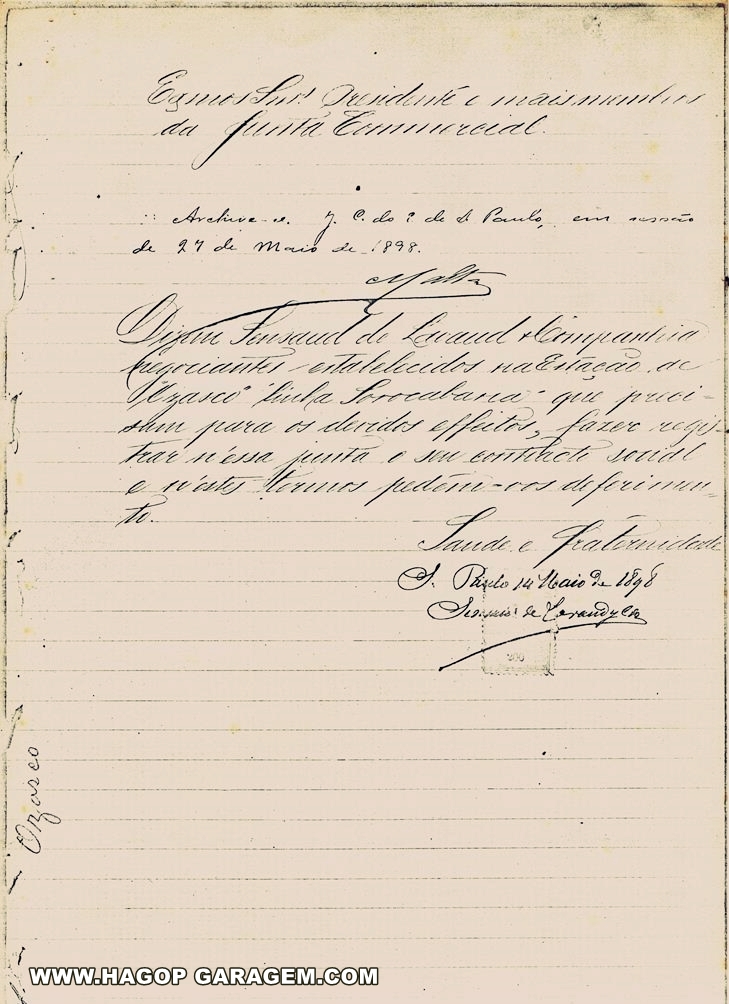 Exmos Snrs Presidente e mais membros
da Junta Commercial.
Archive-se. J. C. do E. de S. Paulo, em sessão
de 27 de Maio de 1898.
Malta
Dizem Sensaud de Lavaud & Companhia
negociantes estabelecidos na Estação de
"Ozasco" Linha Sorocabana - que preci-
sam para os devidos effeitos, fazer regis-
trar n'essa junta o seu contracto social
e n'estes termos pedem-vos deferimen-
to.
Saude e fraternidade
S. Paulo 14 Maio de 1898
Sensaud de Lavaud & Cia
200
Ozasco
WWW.HAGOP GARAGEM.COM